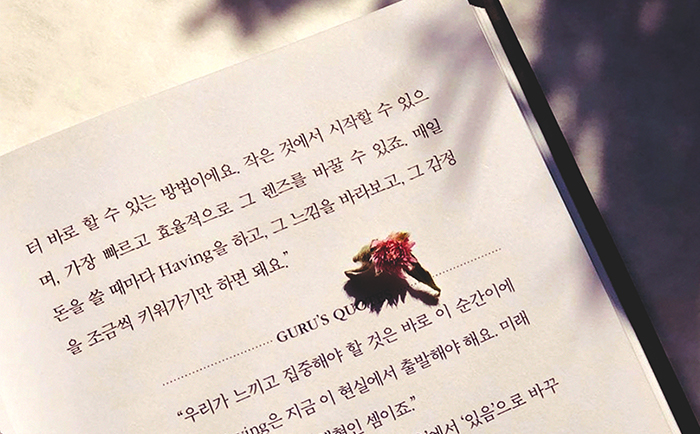 터 바로 할 수 있는 방법이에요. 작은 것에서 시작할 수 있으
며, 가장 빠르고 효율적으로 그 렌즈를 바꿀 수 있죠. 매일
돈을 쓸 때마다 Having을 하고, 그 느낌을 바라보고, 그 감정
을 조금씩 키워가기만 하면 돼요.”
GURU’S
“우리가 느끼고 집중해야 할 것은 바로 이 순간이에
지금 이 현실에서 출발해야 해요. 미래
셈이죠.”
‘있음’으로 바꾸